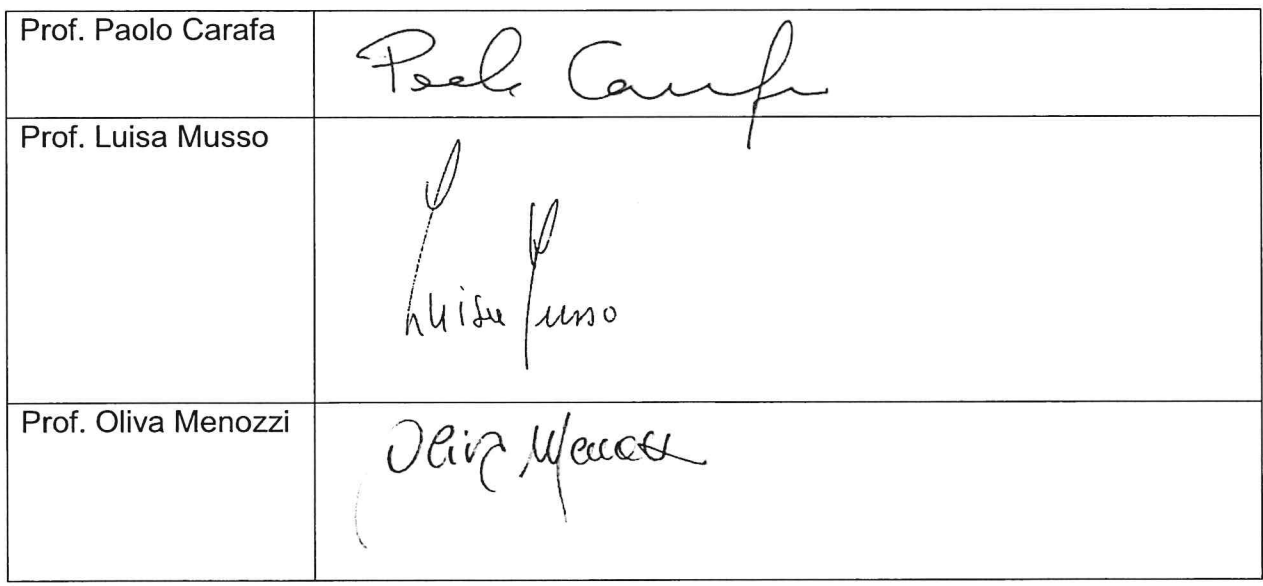 Prof. Paolo Carafa
Paolo Carafa
Prof. Luisa Musso
Luisa Musso
Prof. Oliva Menozzi
Oliva Menozzi